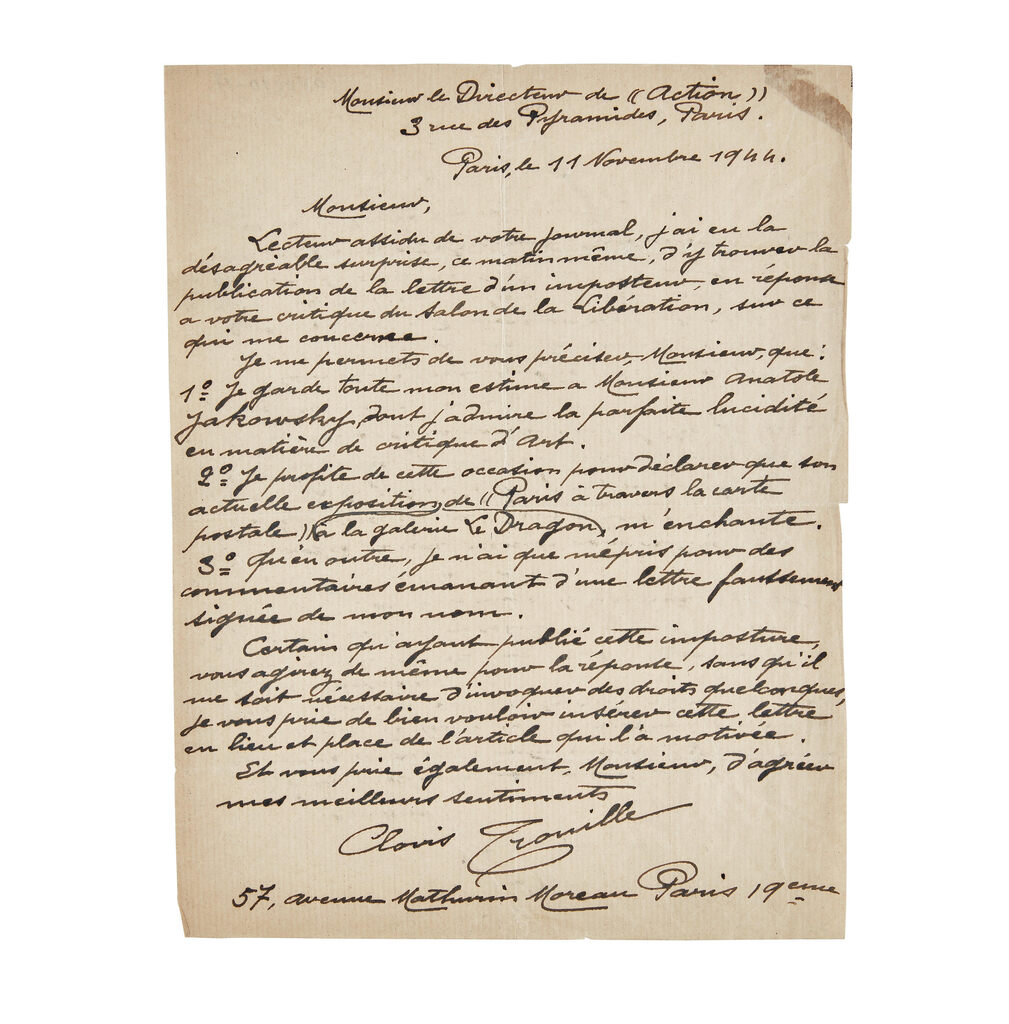 Monsieur le Directeur de (( Action ))
3 rue des Pyramides, Paris.
Paris, le 11 Novembre 1944.
Monsieur,
Lecteur assidu de votre journal, j'ai eu la
désagréable surprise, ce matin même, d'y trouver la
publication de la lettre d'un imposteur, en réponse
a votre critique du Salon de la Libération, sur ce
qui me concerne.
Je me permets de vous préciser, Monsieur, que :
1º Je garde toute mon estime a Monsieur Anatole
Jakowsky, dont j'admire la parfaite lucidité
en matière de critique d'Art.
2º Je profite de cette occasion pour déclarer que son
actuelle exposition, de (( Paris à travers la carte
postale )) à la galerie Le Dragon, m'enchante.
3º Qu'en outre, je n'ai que mépris pour des
commentaires émanant d'une lettre faussement
signée de mon nom.
Certain qu'ayant publié cette imposture,
vous agirez de même pour la réponse, sans qu'il
me soit nécessaire d'invoquer des droits quelconques,
je vous prie de bien vouloir insérer cette lettre
en lieu et place de l'article qui l'a motivée.
Et vous prie également, Monsieur, d'agréer
mes meilleurs sentiments
Clovis Trouille
57, avenue Mathurin Moreau Paris 19eme